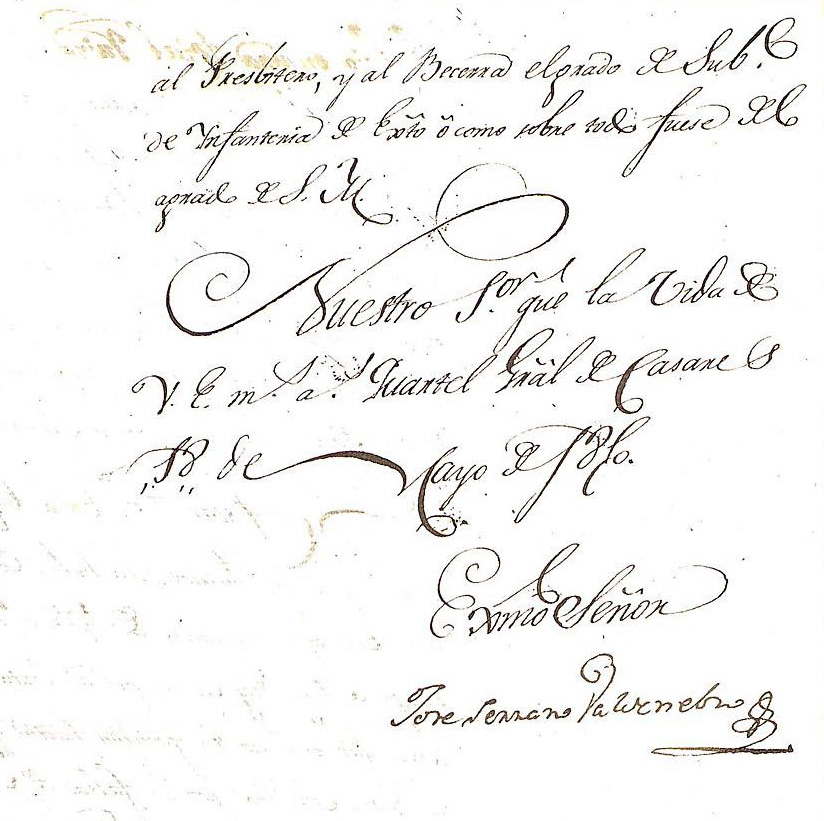 al Presbitero, y al Becerra el grado de Subte
de Infanteria de Exto ó como sobre todo fuese del
agrado de S. M.
Nuestro Sor gue la Vida de
V. E. ms. as. Quartel Gral de Casares
18 de Mayo de 1810.
Exmo Señor
Jose Serrano Valdenebro